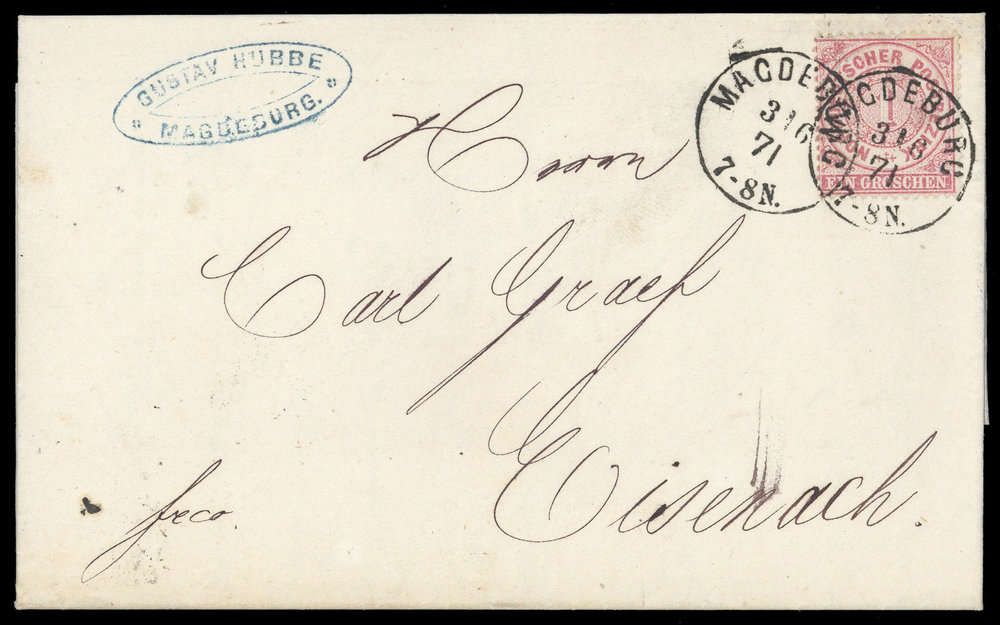 GUSTAV HUBBE
MAGDEBURG.
MAGDEBURG
3 6
71
7-8N.
MAGDEBURG
3 6
71
7-8N.
EIN GROSCHEN
Herrn
Carl Graef
Eisenach.
frco.